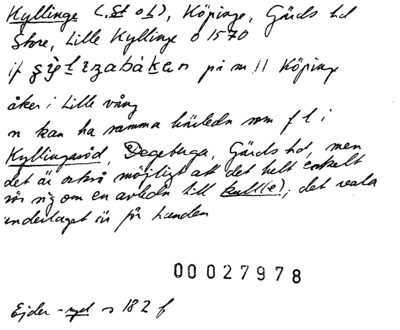 Kyllinge (,St o L), Köpinge, Gärds hd
Store, Lille Kyllinge o 1570
if på m 11 Köpinge
åker i Lille vång
n kan ha samma härledn som f l i
Kyllingaröd, Degeberga, Gärds hd, men
det är också möjligt att det helt enkelt
rör sig om en avledn till kull(e); det reala
underlaget är för handen
00027978
Ejder - s 182 f